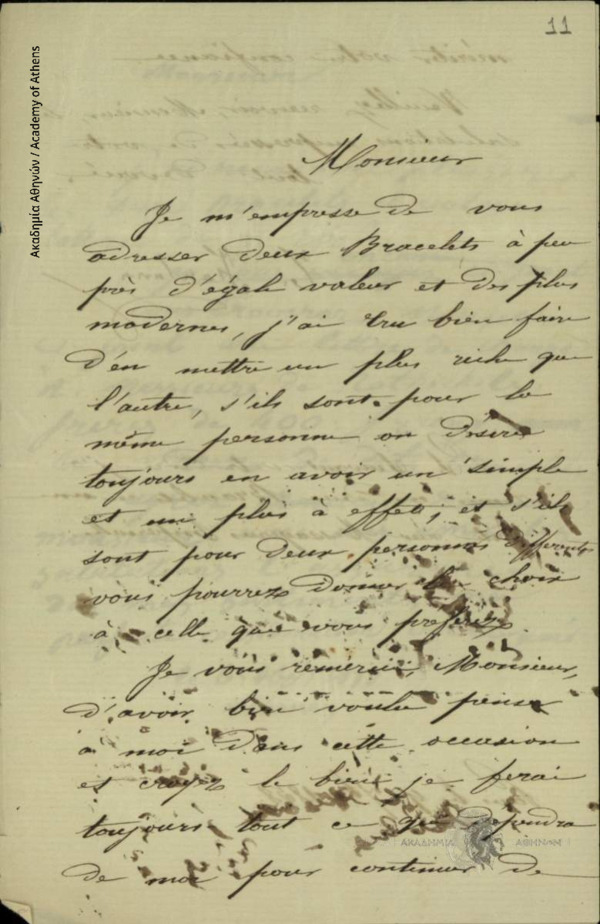 11
Ακαδημία Αθηνών / Academy of Athens
Monsieur
Je m'empresse de vous
adresser deux Bracelets à peu
près d'égale valeur et des plus
modernes, j'ai cru bien faire
d'en mettre un plus riche que
l'autre, s'ils sont pour la
même personne on désire
toujours en avoir un simple
et un plus à effet, et s'ils
sont pour deux personnes différentes
vous pourrez donner le choix
à celle que vous préférez.
Je vous remercie, Monsieur,
d'avoir bien voulu penser
à moi dans cette occasion
et croyez le bien je ferai
toujours tout ce qui dépendra
ΑΚΑΔΗΜΙΑ ΑΘΗΝΩΝ
de moi pour continuer de